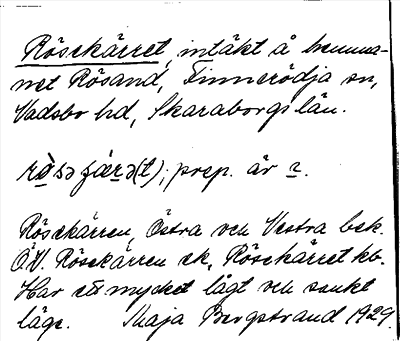 Rösekärret, intäkt å hemma-
net Rösand, Finnerödja sn,
Vadsbo hd, Skaraborgs län.
prep. är
Rösekärren, Östra och Vestra bek.
Ö.V. Rösekärren ek, Rösekärret kb.
Har ett mycket lågt och sankt
läge. Maja Bergstrand 1929.